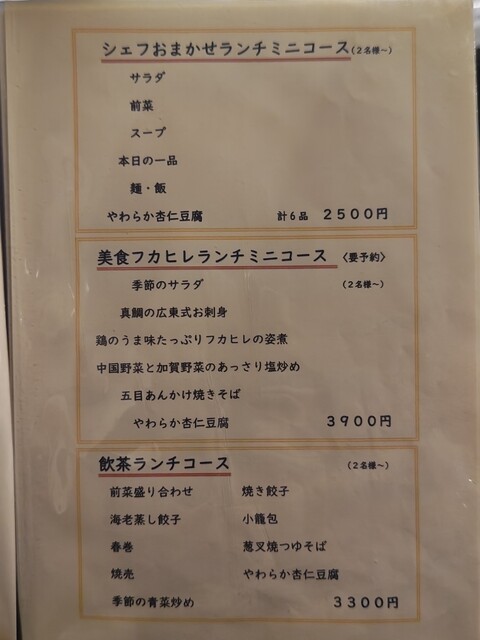 シェフおまかせランチミニコース(2名様~)
サラダ
前菜
スープ
本日の一品
麺・飯
やわらか杏仁豆腐 計6品 2500円
美食フカヒレランチミニコース 〈要予約〉
季節のサラダ (2名様~)
真鯛の広東式お刺身
鶏のうま味たっぷりフカヒレの姿煮
中国野菜と加賀野菜のあっさり塩炒め
五目あんかけ焼きそば
やわらか杏仁豆腐 3900円
飲茶ランチコース (2名様~)
前菜盛り合わせ 焼き餃子
海老蒸し餃子 小籠包
春巻 葱叉焼つゆそば
焼売 やわらか杏仁豆腐
季節の青菜炒め 3300円